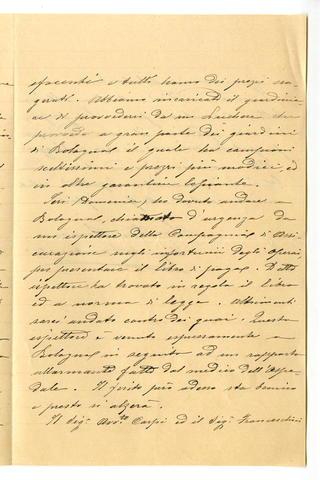 facenti e tutti hanno dei prezzi esa-
geranti. Abbiamo incaricati il giardinie
re di provvedersi da un Luchese che
provvede a gran parte dei giardini
di Bologna il quale ha campioni
sceltissimi e prezzi più modici, ed
in oltre garantisce
Jeri (Domenica) ho dovuto andare a
Bologna, chiamato d'urgenza da
un ispettore della Compagnia di Assi-
curazione negli infortunii degli operai,
per presentare il libro di paga. D.to
ispettore ha trovato in regola il libro
ed a norma di legge. Altrimenti
sarei andato contro dei guai. Questo
ispettore è venuto espressamente a
Bologna in seguito ad un rapporto
allarmante fatto dal medico dell'Ospe-
dale. Il ferito però adesso sta benino
e presto si alzerà.
Il Sig. Avv.to Carpi ed il Sig. Franceschini